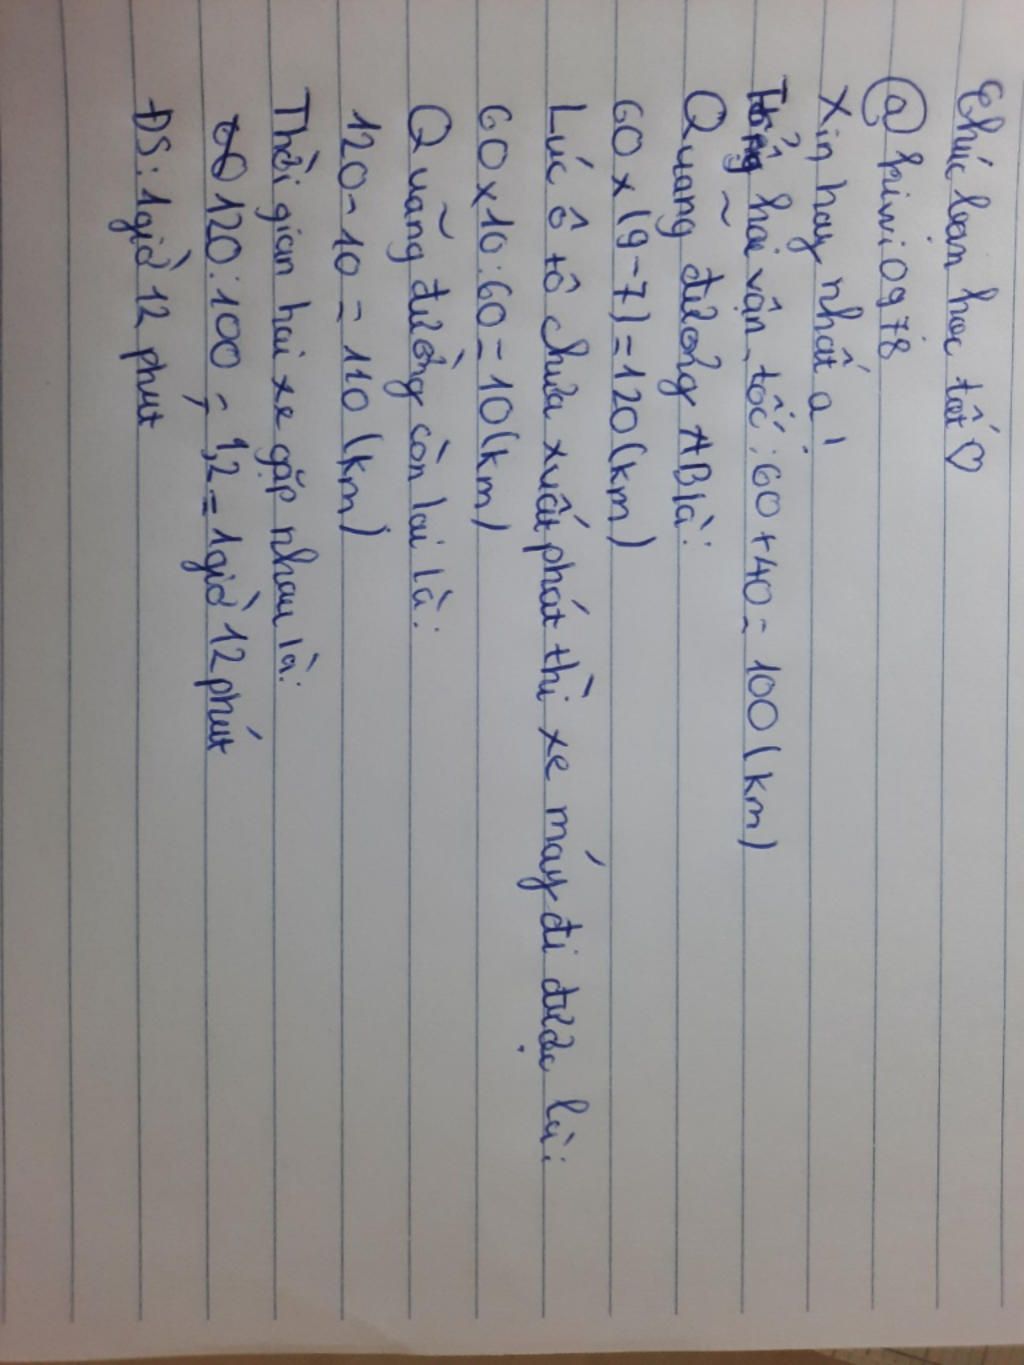 Chúc bạn học tốt ♡
@kiwi0978
Xin hay nhất ạ!
Tổng hai vận tốc: 60 + 40 = 100 (km)
Quãng đường AB là:
60 x (9-7) = 120 (km)
Lúc ô tô chưa xuất phát thì xe máy đi được là:
60 x 10 : 60 = 10 (km)
Quãng đường còn lại là:
120 - 10 = 110 (km)
Thời gian hai xe gặp nhau là:
120 : 100 = 1,2 = 1 giờ 12 phút
ĐS: 1 giờ 12 phút